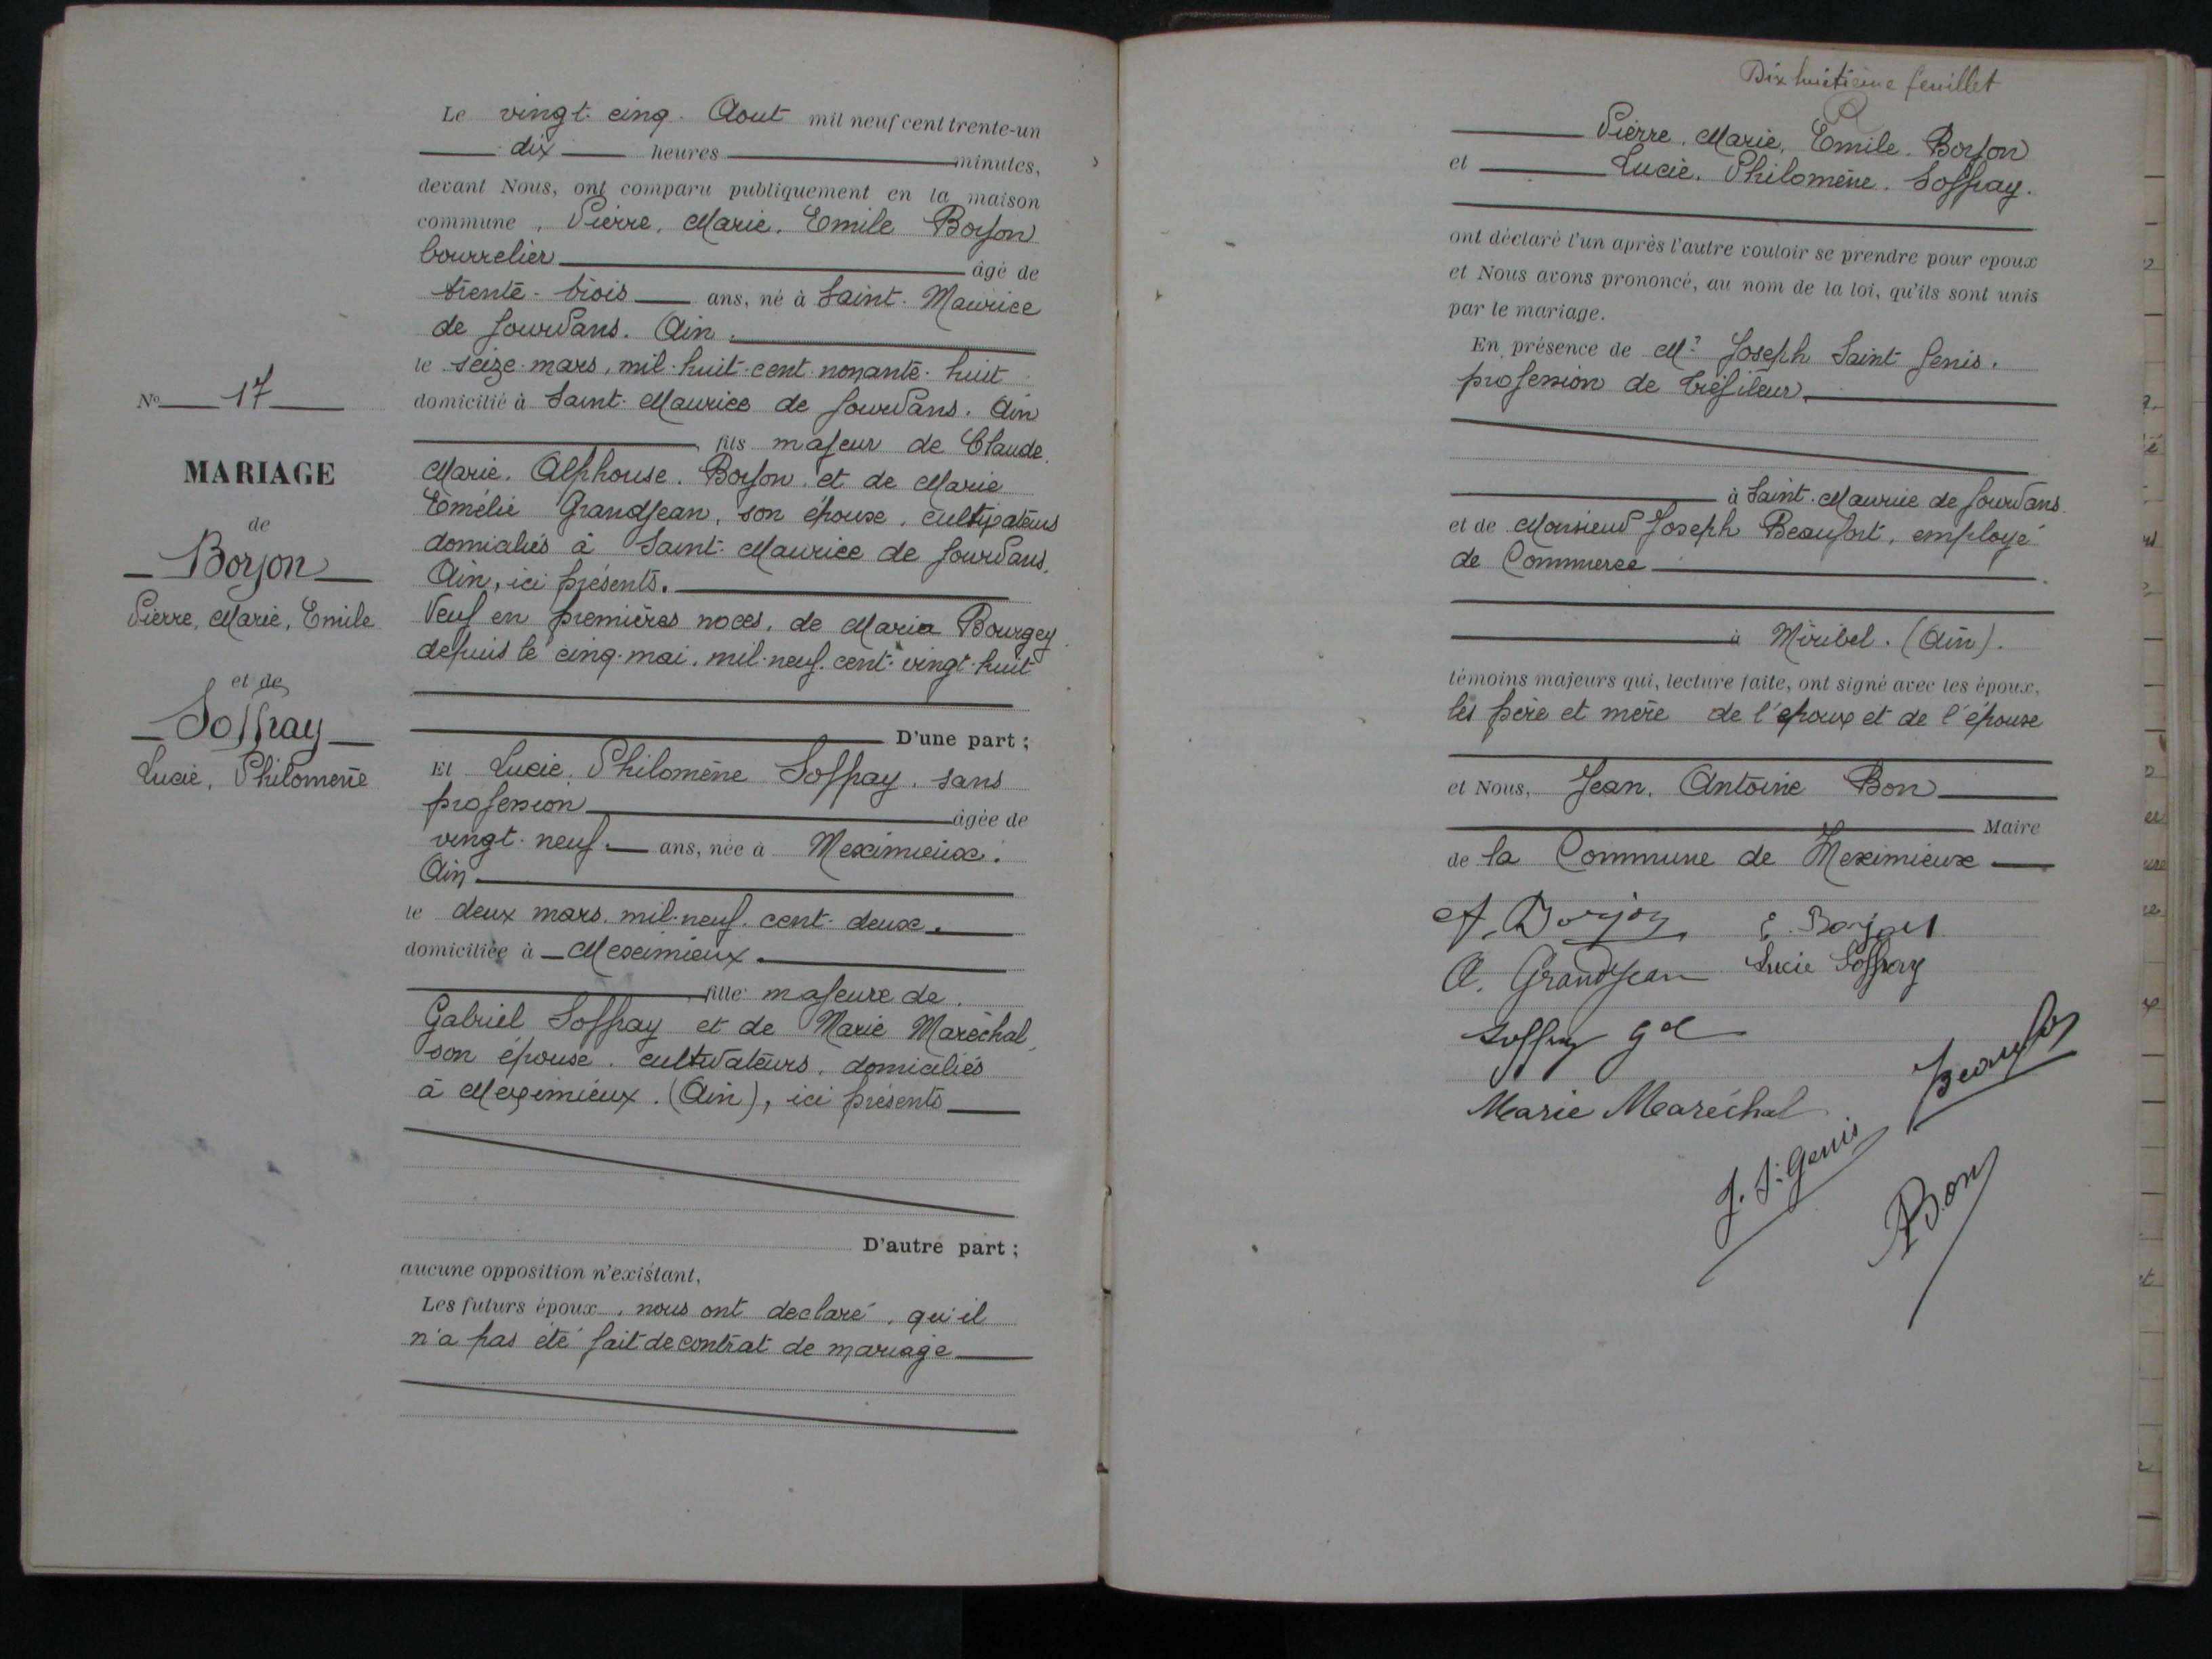 Le vingt-cinq. Aout mil neuf cent trente-un
dix heures minutes,
devant Nous, ont comparu publiquement en la maison
commune, Pierre, Marie, Emile Borjon
bourrelier âgé de
trente-trois ans, né à Saint-Maurice
de Gourdans. Ain.
le seize-mars, mil-huit-cent-nonante-huit
domicilié à Saint-Maurice de Gourdans. Ain
fils majeur de Claude
Marie. Alphonse. Borjon et de Marie
Emélie Grandjean, son épouse, cultivateurs
domiciliés à Saint-Maurice de Gourdans,
Ain, ici présents.
Veuf en premières noces, de Maria Bourgey
depuis le cinq-mai, mil-neuf-cent-vingt-huit
D'une part ;
Et Lucie, Philomène Soffray, sans
profession âgée de
vingt-neuf. ans, née à Meximieux.
Ain
le deux mars mil-neuf-cent-deux.
domiciliée à Meximieux.
fille majeure de
Gabriel Soffray et de Marie Maréchal,
son épouse, cultivateurs, domiciliés
à Meximieux. (Ain), ici présents
D'autre part ;
aucune opposition n'existant,
Les futurs époux, nous ont declaré, qu'il
n'a pas été fait de contrat de mariage
N° 17
MARIAGE
de
Borjon
Pierre, Marie, Emile
et de
Soffray
Lucie, Philomène
Dix huitième feuillet
Pierre, Marie, Emile. Borjon
et Lucie. Philomène. Soffray.
ont déclaré l'un après l'autre vouloir se prendre pour epoux
et Nous avons prononcé, au nom de la loi, qu'ils sont unis
par le mariage.
En présence de Mr Joseph Saint Genis.
profession de tréfileur.
à Saint-Maurice de Gourdans
et de Monsieur Joseph Beaufort, employé
de Commerce
à Miribel. (Ain).
témoins majeurs qui, lecture faite, ont signé avec les époux,
les père et mère de l'époux et de l'épouse
et Nous, Jean, Antoine Bon
Maire
de la Commune de Meximieux
A. Borjon E. Borjon
A. Grandjean Lucie Soffray
Soffray Gel
Marie Maréchal
Beaufort
J. St Genis
Bon